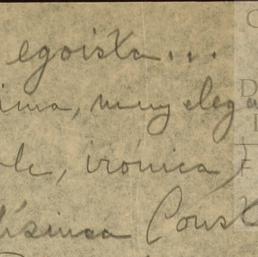 egoista...
ima, muy eleg
le, irónica,
ísima Const